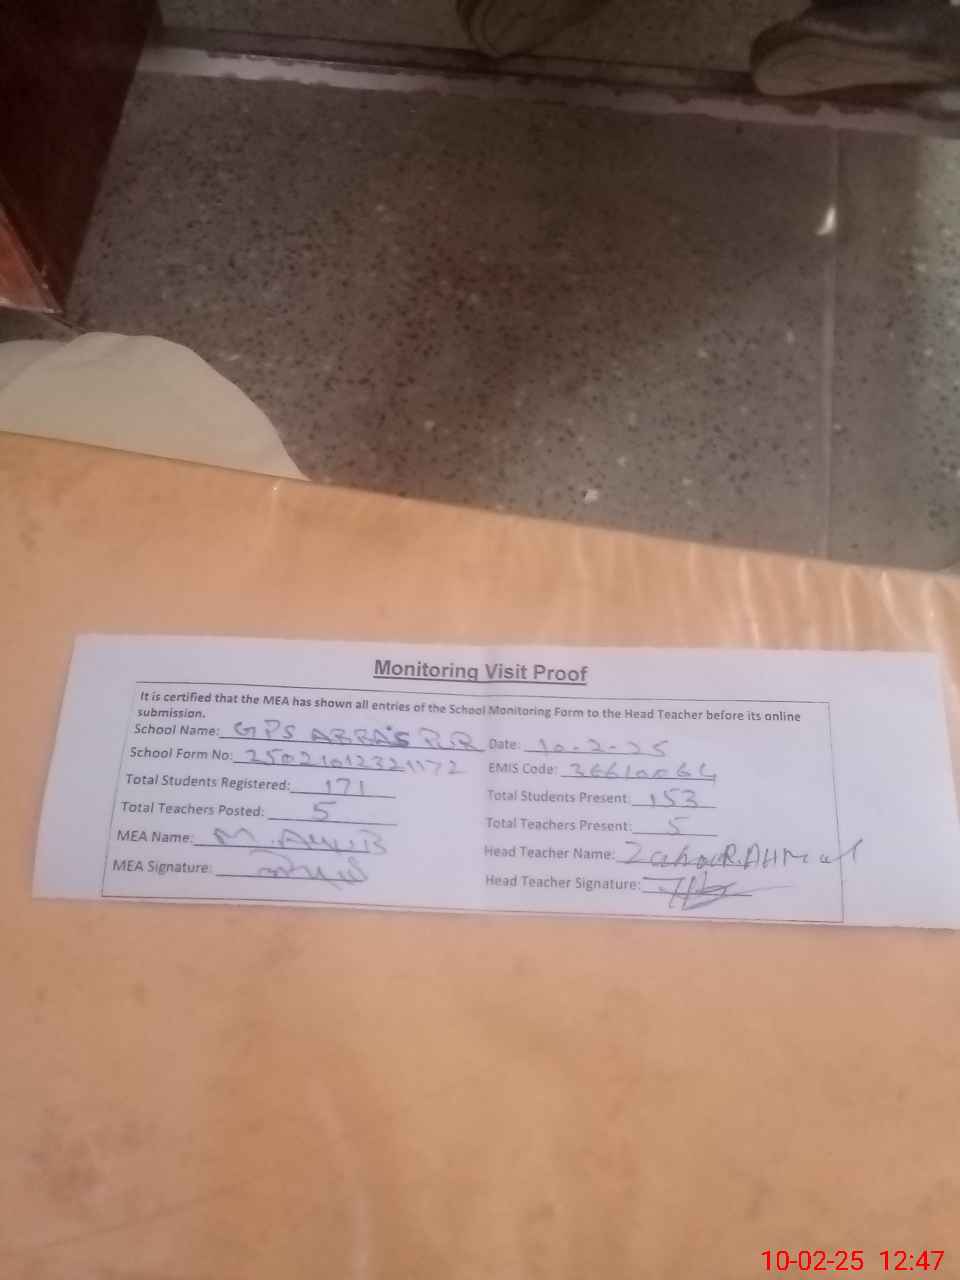 Monitoring Visit Proof
It is certified that the MEA has shown all entries of the School Monitoring Form to the Head Teacher before its online
submission.
School Name: GPS ABBAS PUR Date: 10-2-25
School Form No: EMIS Code:
Total Students Registered: 171 Total Students Present: 153
Total Teachers Posted: 5 Total Teachers Present: 5
MEA Name: M. Head Teacher Name:
MEA Signature: Head Teacher Signature:
10-02-25 12:47